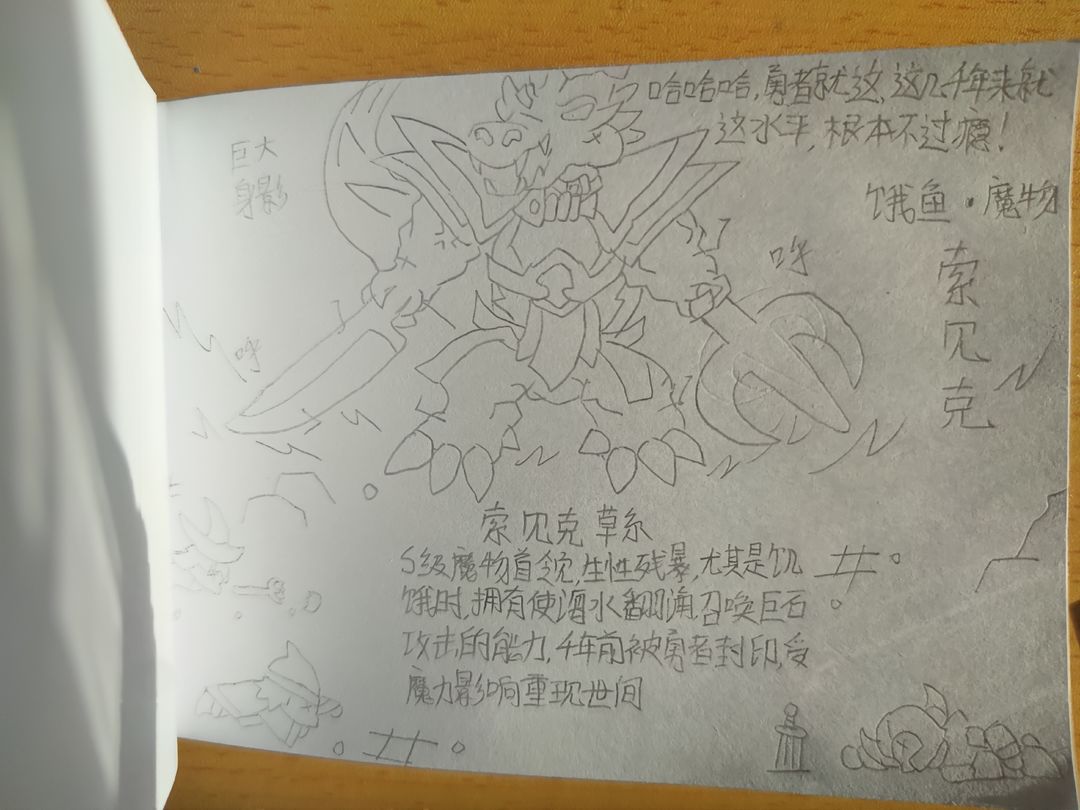 哈哈哈,勇者就这,这几千年来就
这水平,根本不过瘾!
巨大
身影
饿鱼·魔物
索见克
呼
呼
索见克 草系
S级魔物首领,生性残暴,尤其是饥
饿时,拥有使海水翻涌,召唤巨石
攻击的能力,千年前被勇者封印,受
魔力影响重现世间